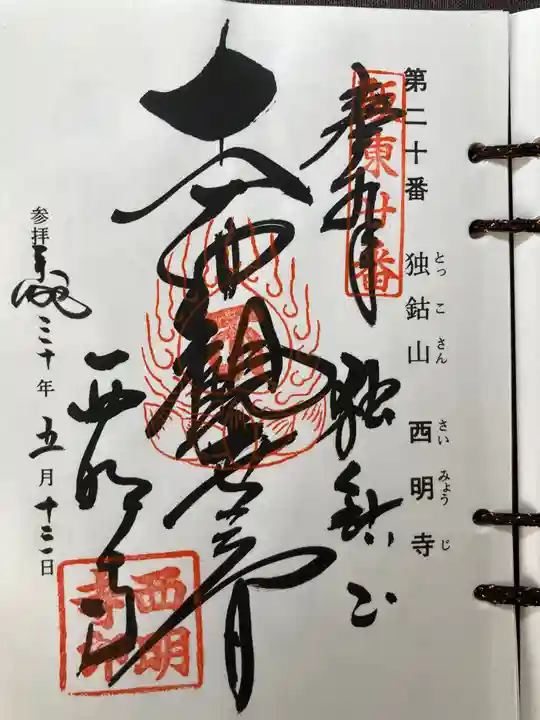 第二十番 独鈷山 西明寺
とっこさん さいみょうじ
坂東廿番
奉拝
独鈷山
十一面観世音
西明寺
西明寺印
参拝 平成三十年五月十三日